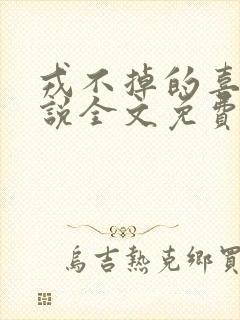 戎不掉的喜
說全文免費
烏吉熱克鄉買